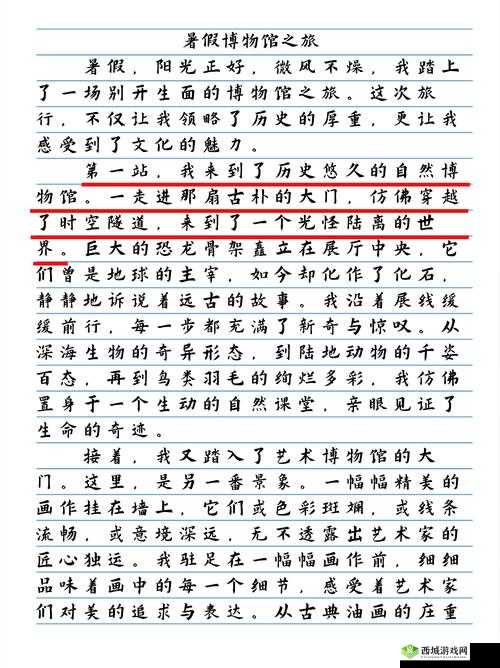 暑假博物馆之旅
暑假，阳光正好，微风不燥，我踏上
了一场别开生面的博物馆之旅。这次旅
行，不仅让我领略了历史的厚重，更让我
感受到了文化的魅力。
第一站，我来到了历史悠久的自然博
物馆。一走进那扇古朴的大门，仿佛穿越
了时空隧道，来到了一个光怪陆离的世
界。巨大的恐龙骨架矗立在展厅中央，它
们曾是地球的主宰，如今却化作了化石，
静静地诉说着远古的故事。我沿着展线缓
缓前行，每一步都充满了新奇与惊叹。从
深海生物的奇异形态，到陆地动物的千姿
百态，再到鸟类羽毛的绚烂多彩，我仿佛
置身于一个生动的自然课堂，亲眼见证了
生命的奇迹。
接着，我又踏入了艺术博物馆的大
门。这里，是另一番景象。一幅幅精美的
画作挂在墙上，它们或色彩斑斓，或线条
流畅，或意境深远，无不透露出艺术家的
匠心独运。我驻足在一幅幅画作前，细细
品味着画中的每一个细节，感受着艺术家
们对美的追求与表达。从古典油画的庄重
西城游戏网